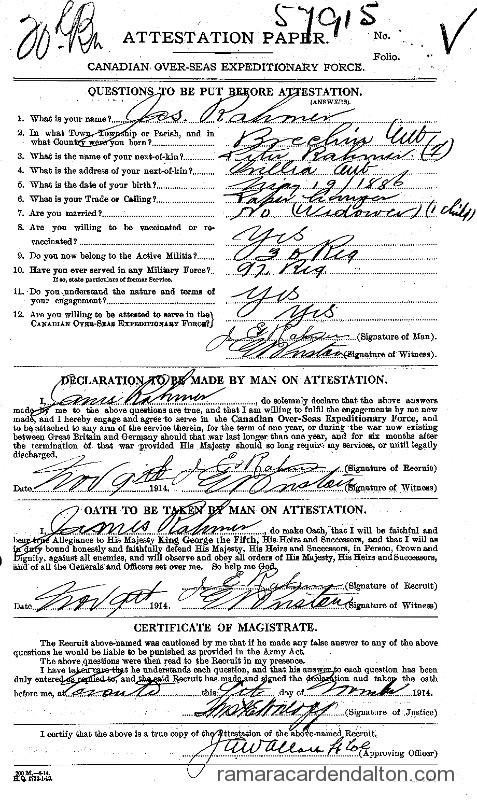 57915
ATTESTATION PAPER.
No.
Folio.
CANADIAN OVER-SEAS EXPEDITIONARY FORCE.
QUESTIONS TO BE PUT BEFORE ATTESTATION.
(ANSWERS).
1. What is your name? Jas. Rahmer
2. In what Town, Township or Parish, and in
what Country were you born? Brechin Ont
3. What is the name of your next-of-kin? Rahmer
4. What is the address of your next-of-kin? Orillia Ont
5. What is the date of your birth? 19/1886
6. What is your Trade or Calling? Paper Hanger
7. Are you married? No (Widower) (1 child)
8. Are you willing to be vaccinated or re-
vaccinated? Yes
9. Do you now belong to the Active Militia? Reg
10. Have you ever served in any Military Force? Reg
If so, state particulars of former Service.
11. Do you understand the nature and terms of
your engagement? Yes
12. Are you willing to be attested to serve in the
CANADIAN OVER-SEAS EXPEDITIONARY FORCE? Yes
J. E. Rahmer (Signature of Man).
(Signature of Witness).
DECLARATION TO BE MADE BY MAN ON ATTESTATION.
I, James Rahmer, do solemnly declare that the above answers
made by me to the above questions are true, and that I am willing to fulfil the engagements by me now
made, and I hereby engage and agree to serve in the Canadian Over-Seas Expeditionary Force, and
to be attached to any arm of the service therein, for the term of one year, or during the war now existing
between Great Britain and Germany should that war last longer than one year, and for six months after
the termination of that war provided His Majesty should so long require my services, or until legally
discharged.
J. E. Rahmer (Signature of Recruit)
Date Nov 9th 1914. (Signature of Witness)
OATH TO BE TAKEN BY MAN ON ATTESTATION.
I, James Rahmer, do make Oath, that I will be faithful and
bear true Allegiance to His Majesty King George the Fifth, His Heirs and Successors, and that I will as
in duty bound honestly and faithfully defend His Majesty, His Heirs and Successors, in Person, Crown and
Dignity, against all enemies, and will observe and obey all orders of His Majesty, His Heirs and Successors,
and of all the Generals and Officers set over me. So help me God.
J. E. Rahmer (Signature of Recruit)
Date Nov 9th 1914. (Signature of Witness)
CERTIFICATE OF MAGISTRATE.
The Recruit above-named was cautioned by me that if he made any false answer to any of the above
questions he would be liable to be punished as provided in the Army Act.
The above questions were then read to the Recruit in my presence.
I have taken care that he understands each question, and that his answer to each question has been
duly entered as replied to, and the said Recruit has made and signed the declaration and taken the oath
before me, at Toronto this 9th day of November 1914.
(Signature of Justice)
I certify that the above is a true copy of the Attestation of the above-named Recruit.
J A Wallace Lt Col (Approving Officer)
ramaracardendalton.com